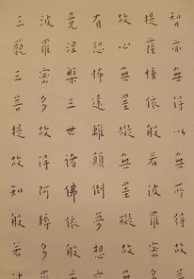 智亦無得以無所得故
提薩埵依般若波羅蜜
故心無罣礙無罣礙故
有恐怖遠離顛倒夢想
竟涅槃三世諸佛依般
波羅蜜多故得阿耨多
三藐三菩提故知般若